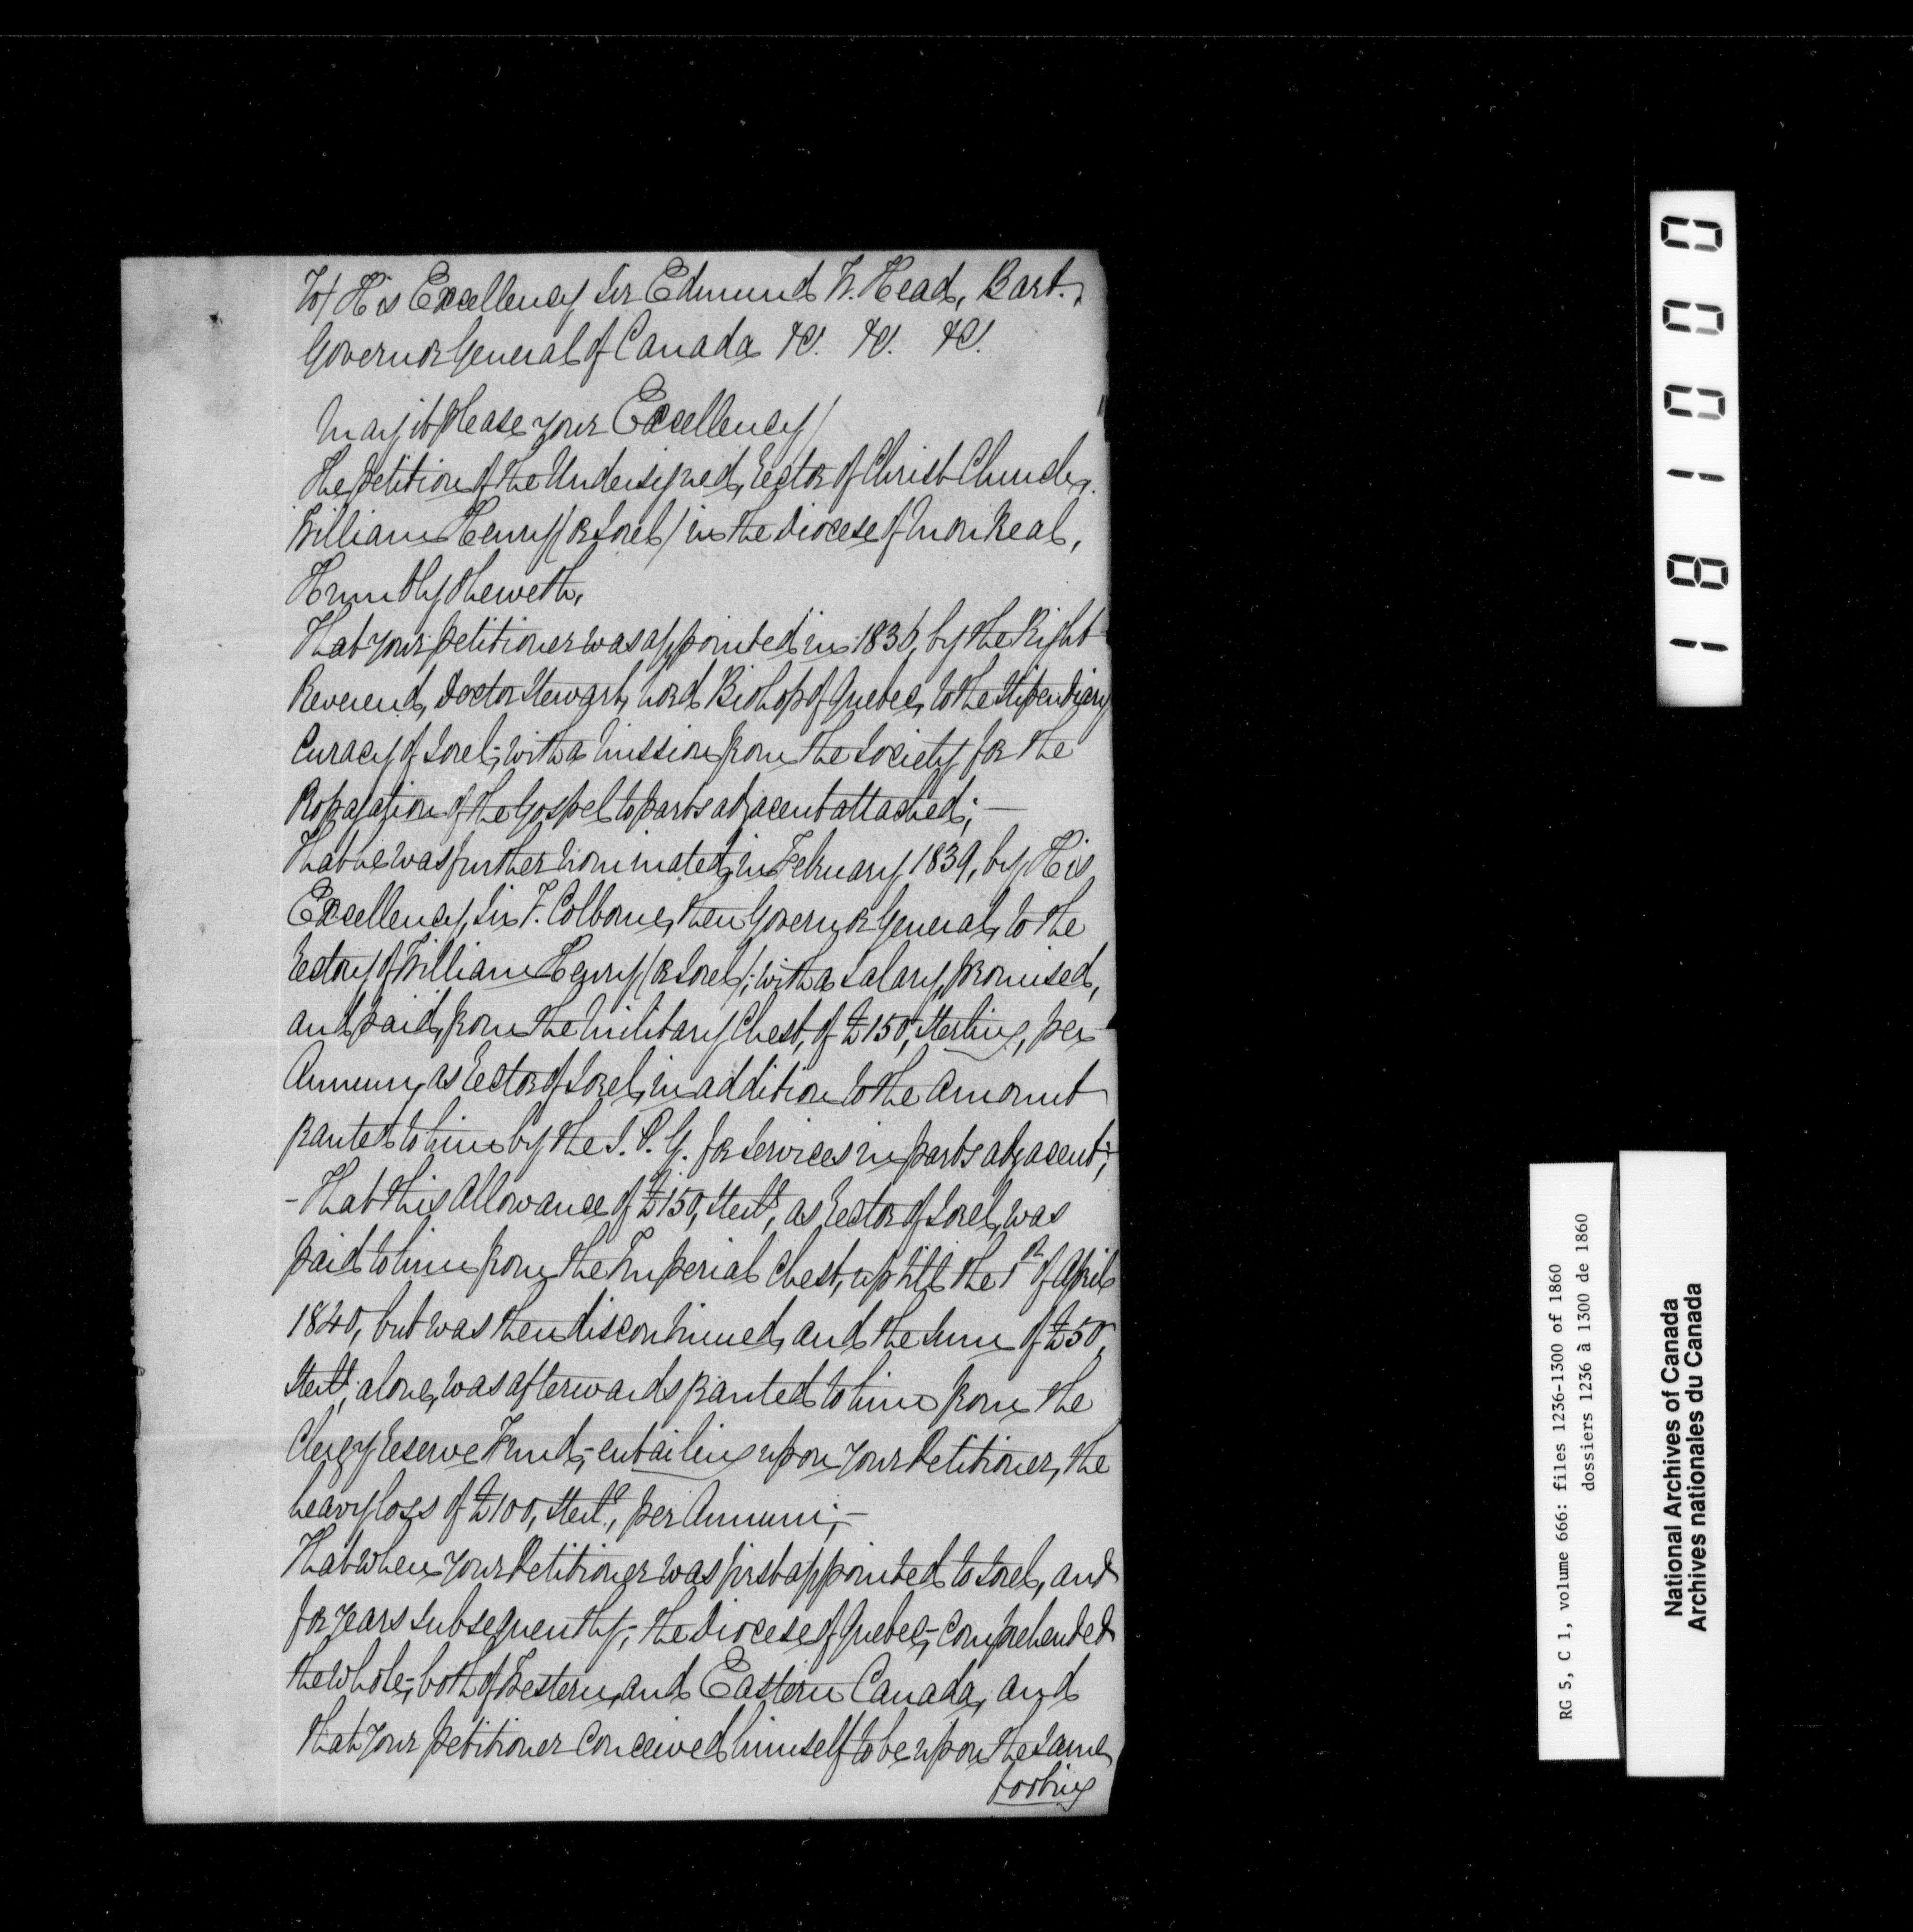 To/ His Excellency Sir Edmund W. Head, Bart.,
Governor General of Canada &c. &c. &c.
May it please your Excellency/
The Petition of the Undersigned, Rector of Christ Church,
William Henry (or Sorel) in the Diocese of Montreal,
Humbly Sheweth,
That your petitioner was appointed in 1836, by the Right
Reverend, Doctor Stewart, Lord Bishop of Quebec, to the Stipendiary
Curacy of Sorel; with a Mission from the Society for the
Propagation of the Gospel to parts adjacent attached; —
That he was further nominated, in February 1839, by His
Excellency, Sir J. Colborne, then Governor General, to the
Rectory of William Henry (or Sorel); with a Salary, promised,
and paid, from the Military Chest, of £150, Sterling, per
Annum, as Rector of Sorel, in addition to the Amount
granted to him by the S. P. G. for services in parts adjacent;
- That this Allowance of £150, Sterlg, as Rector of Sorel, was
paid to him from the Imperial Chest, up till the 1st of April
1840, but was then discontinued, and the Sum of £50,
Sterlg, alone, was afterwards granted to him from the
Clergy Reserve Fund,- entailing upon your Petitioner, the
heavy loss of £100, Sterlg, per Annum; —
That when your Petitioner was first appointed to Sorel, and
for years subsequently,- the Diocese of Quebec,- Comprehended
the whole,- both of Western, and Eastern Canada, and
that your petitioner conceived himself to be upon the same
footing
181000
RG 5, C 1, volume 666: files 1236-1300 of 1860
dossiers 1236 à 1300 de 1860
National Archives of Canada
Archives nationales du Canada